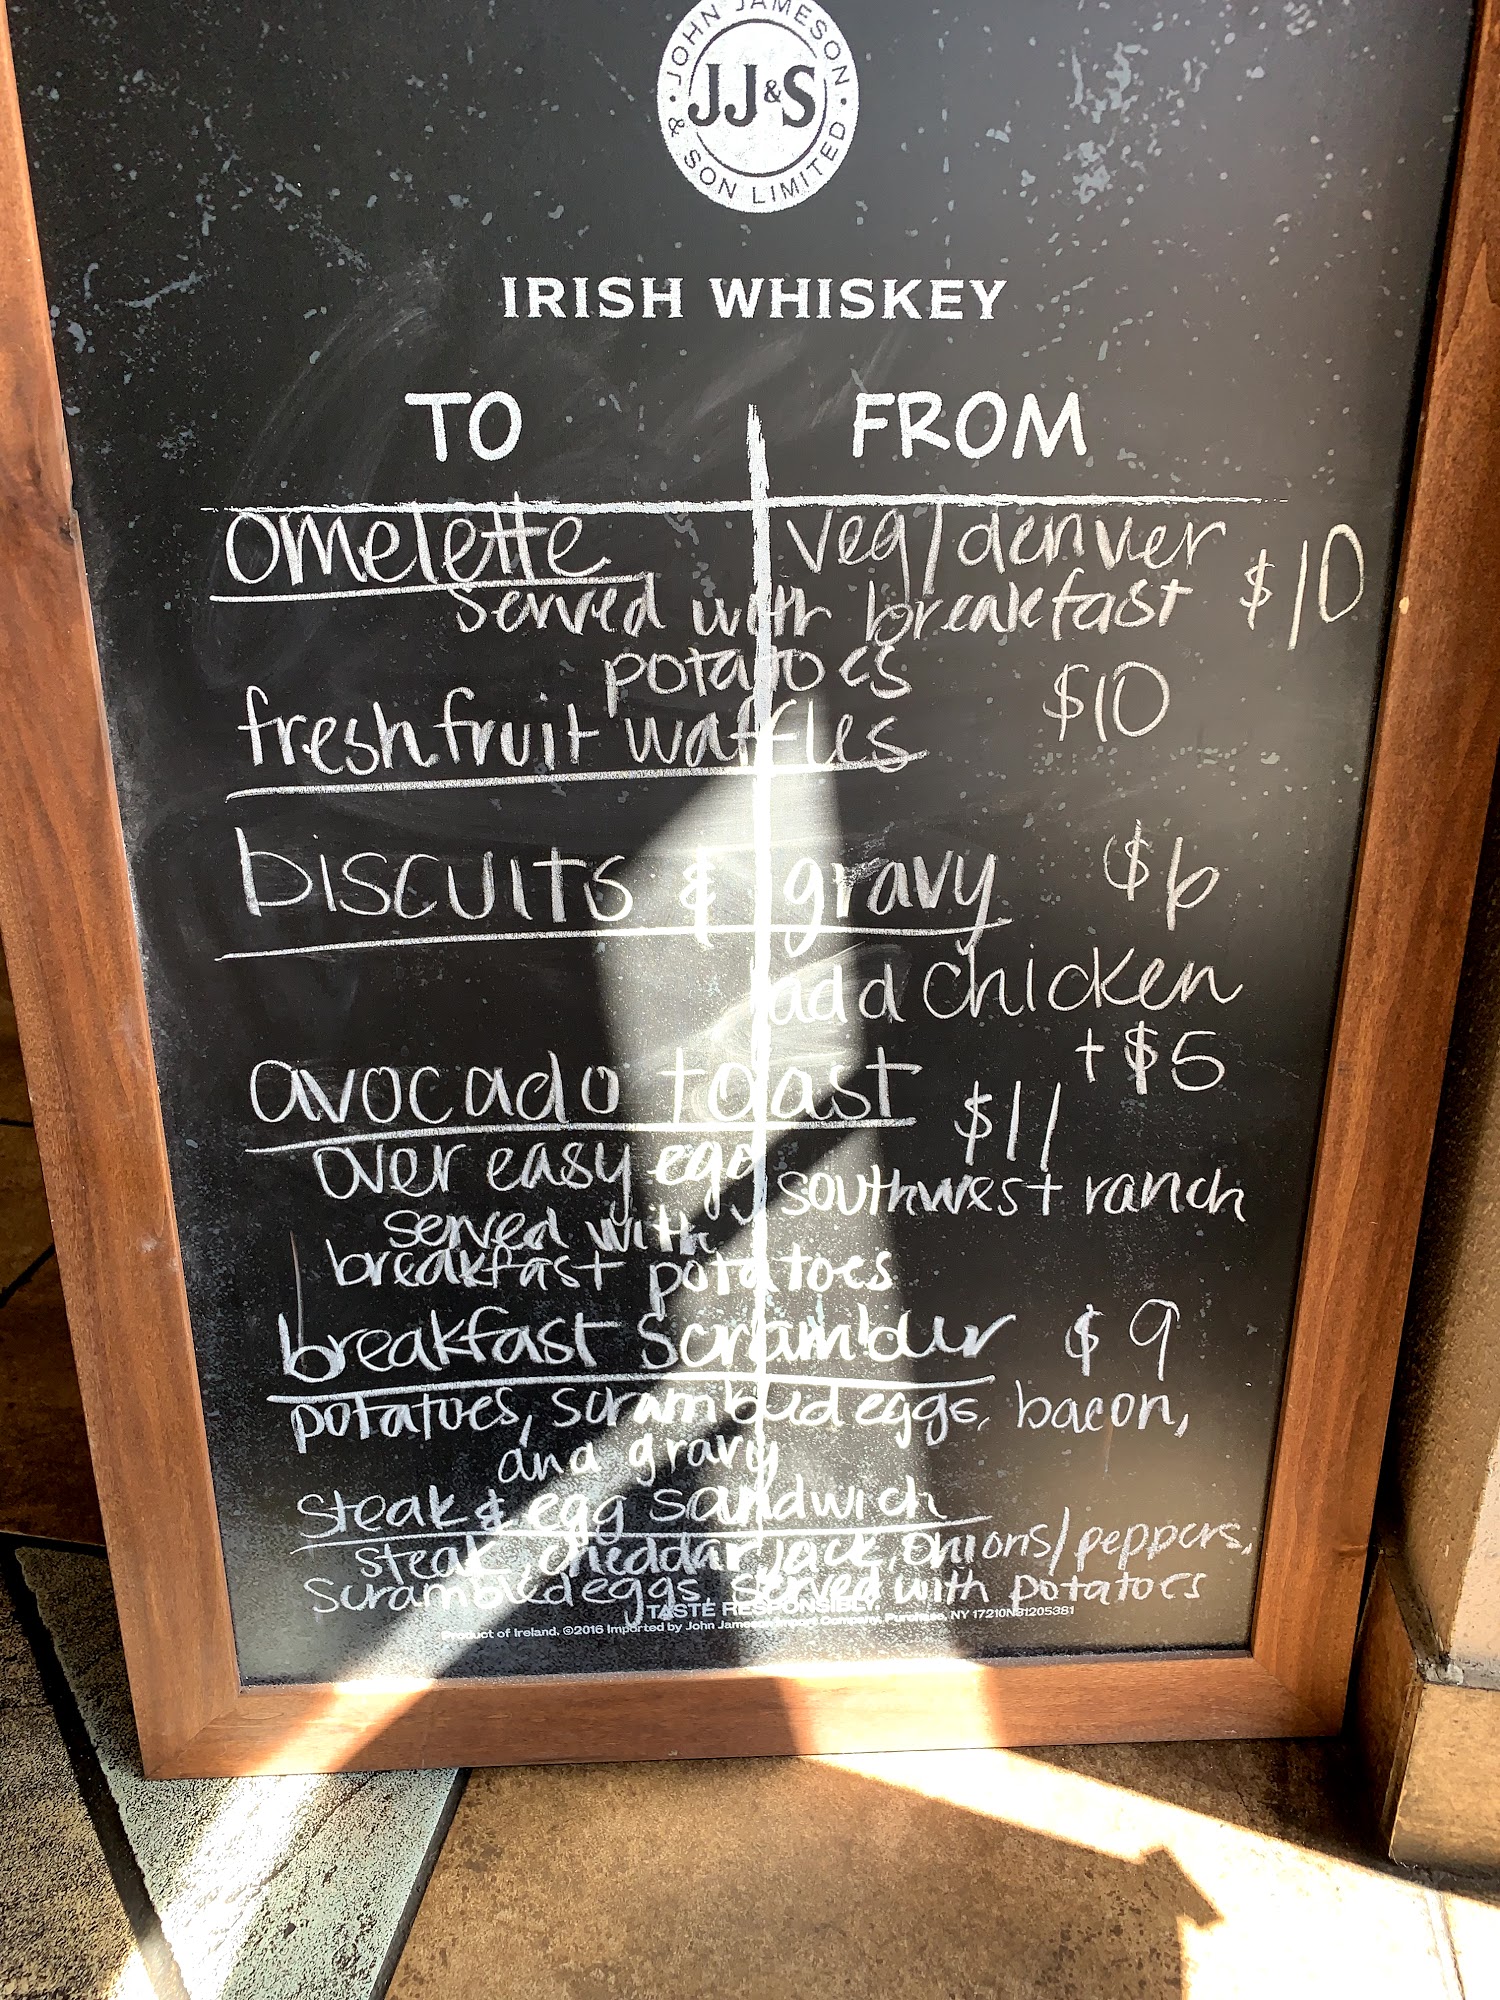 JOHN JAMESON
JJ&S
& SON LIMITED
IRISH WHISKEY
TO FROM
omelette veg/denver $10
served with breakfast
potatoes
fresh fruit waffles $10
biscuits & gravy $6
add chicken
+$5
avocado toast $11
over easy egg southwest ranch
served with
breakfast potatoes
breakfast scrambler $9
potatoes, scrambled eggs, bacon,
and gravy
steak & egg sandwich
steak, cheddar jack, onions/peppers,
scrambled eggs, served with potatoes
TASTE RESPONSIBLY.
Product of Ireland. ©2016 Imported by John Jameson Import Company, Purchase, NY 17210N81205381